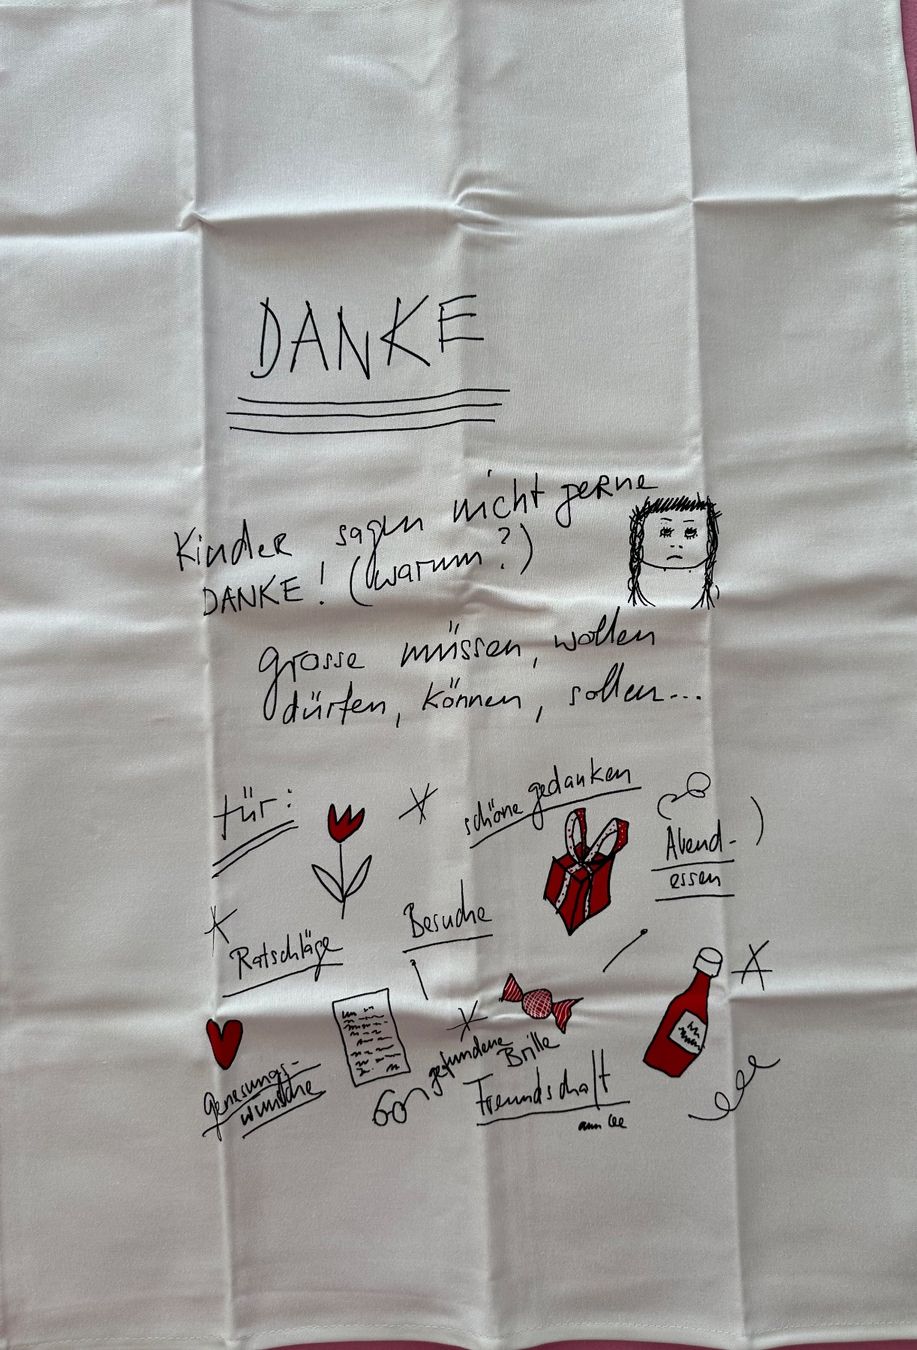 DANKE
Kinder sagen nicht gerne
DANKE! (warum?)
grosse müssen, wollen
dürfen, können, sollen...
für:
schöne gedanken
Abend-
essen
Besuche
Ratschläge
gefundene
Brille
genesungs-
wünsche
Freundschaft